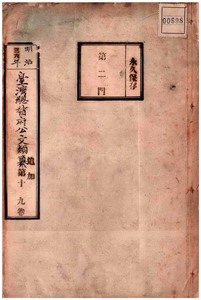 00598
永久保存
第二門
明治
臺灣總督府公文類纂
追加
第十九卷